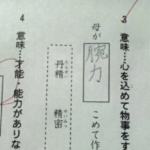 3 意味…心を込めて物事をす
母が
腕力
こめて作
丹精 精密
せいみつ
4 意味…才能・能力がありな